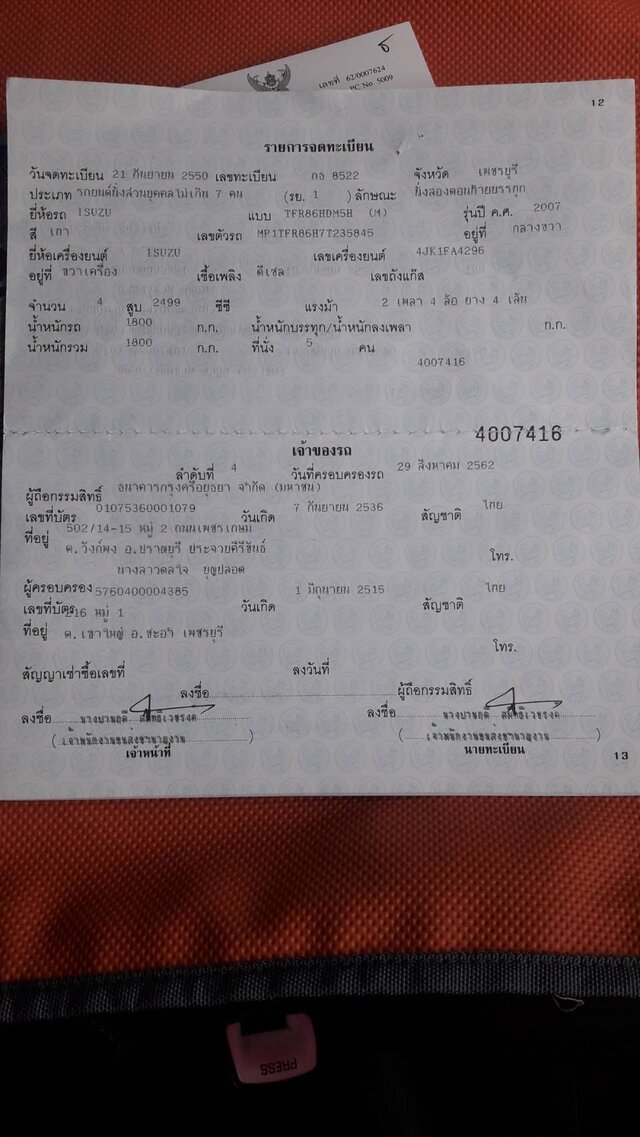 ธ
เลขที่ 62/0007624
PC No. 5009
12
รายการจดทะเบียน
วันจดทะเบียน 21 กันยายน 2550 เลขทะเบียน กธ 8522 จังหวัด เพชรบุรี
ประเภท รถยนต์นั่งส่วนบุคคลไม่เกิน 7 คน (รย. 1 ) ลักษณะ นั่งสองตอนท้ายบรรทุก
ยี่ห้อรถ ISUZU แบบ TFR86HDM5H (M) รุ่นปี ค.ศ. 2007
สี เทา เลขตัวรถ MP1TFR86H7T235845 อยู่ที่ กลางขวา
ยี่ห้อเครื่องยนต์ ISUZU เลขเครื่องยนต์ 4JK1FA4296
อยู่ที่ ขวาเครื่อง เชื้อเพลิง ดีเซล เลขถังแก๊ส
จำนวน 4 สูบ 2499 ซีซี แรงม้า 2 เพลา 4 ล้อ ยาง 4 เส้น
น้ำหนักรถ 1800 ก.ก. น้ำหนักบรรทุก/น้ำหนักลงเพลา ก.ก.
น้ำหนักรวม 1800 ก.ก. ที่นั่ง 5 คน
4007416
4007416
เจ้าของรถ
ลำดับที่ 4 วันที่ครอบครองรถ 29 สิงหาคม 2562
ผู้ถือกรรมสิทธิ์ ธนาคารกรุงศรีอยุธยา จำกัด (มหาชน)
เลขที่บัตร 01075360001079 วันเกิด 7 กันยายน 2536 สัญชาติ ไทย
ที่อยู่ 502/14-15 หมู่ 2 ถนนเพชรเกษม
ต.วังก์พง อ.ปราณบุรี ประจวบคีรีขันธ์
โทร.
ผู้ครอบครอง นางสาวดลใจ บุญปลอด
เลขที่บัตร 5760400004385 วันเกิด 1 มิถุนายน 2515 สัญชาติ ไทย
ที่อยู่ 216 หมู่ 1
ต.เขาใหญ่ อ.ชะอำ เพชรบุรี
โทร.
สัญญาเช่าซื้อเลขที่ ลงวันที่
ลงชื่อ ผู้ถือกรรมสิทธิ์
ลงชื่อ ลงชื่อ
(เจ้าพนักงานขนส่งชำนาญงาน) (เจ้าพนักงานขนส่งชำนาญงาน)
เจ้าหน้าที่ นายทะเบียน
13
PRESS